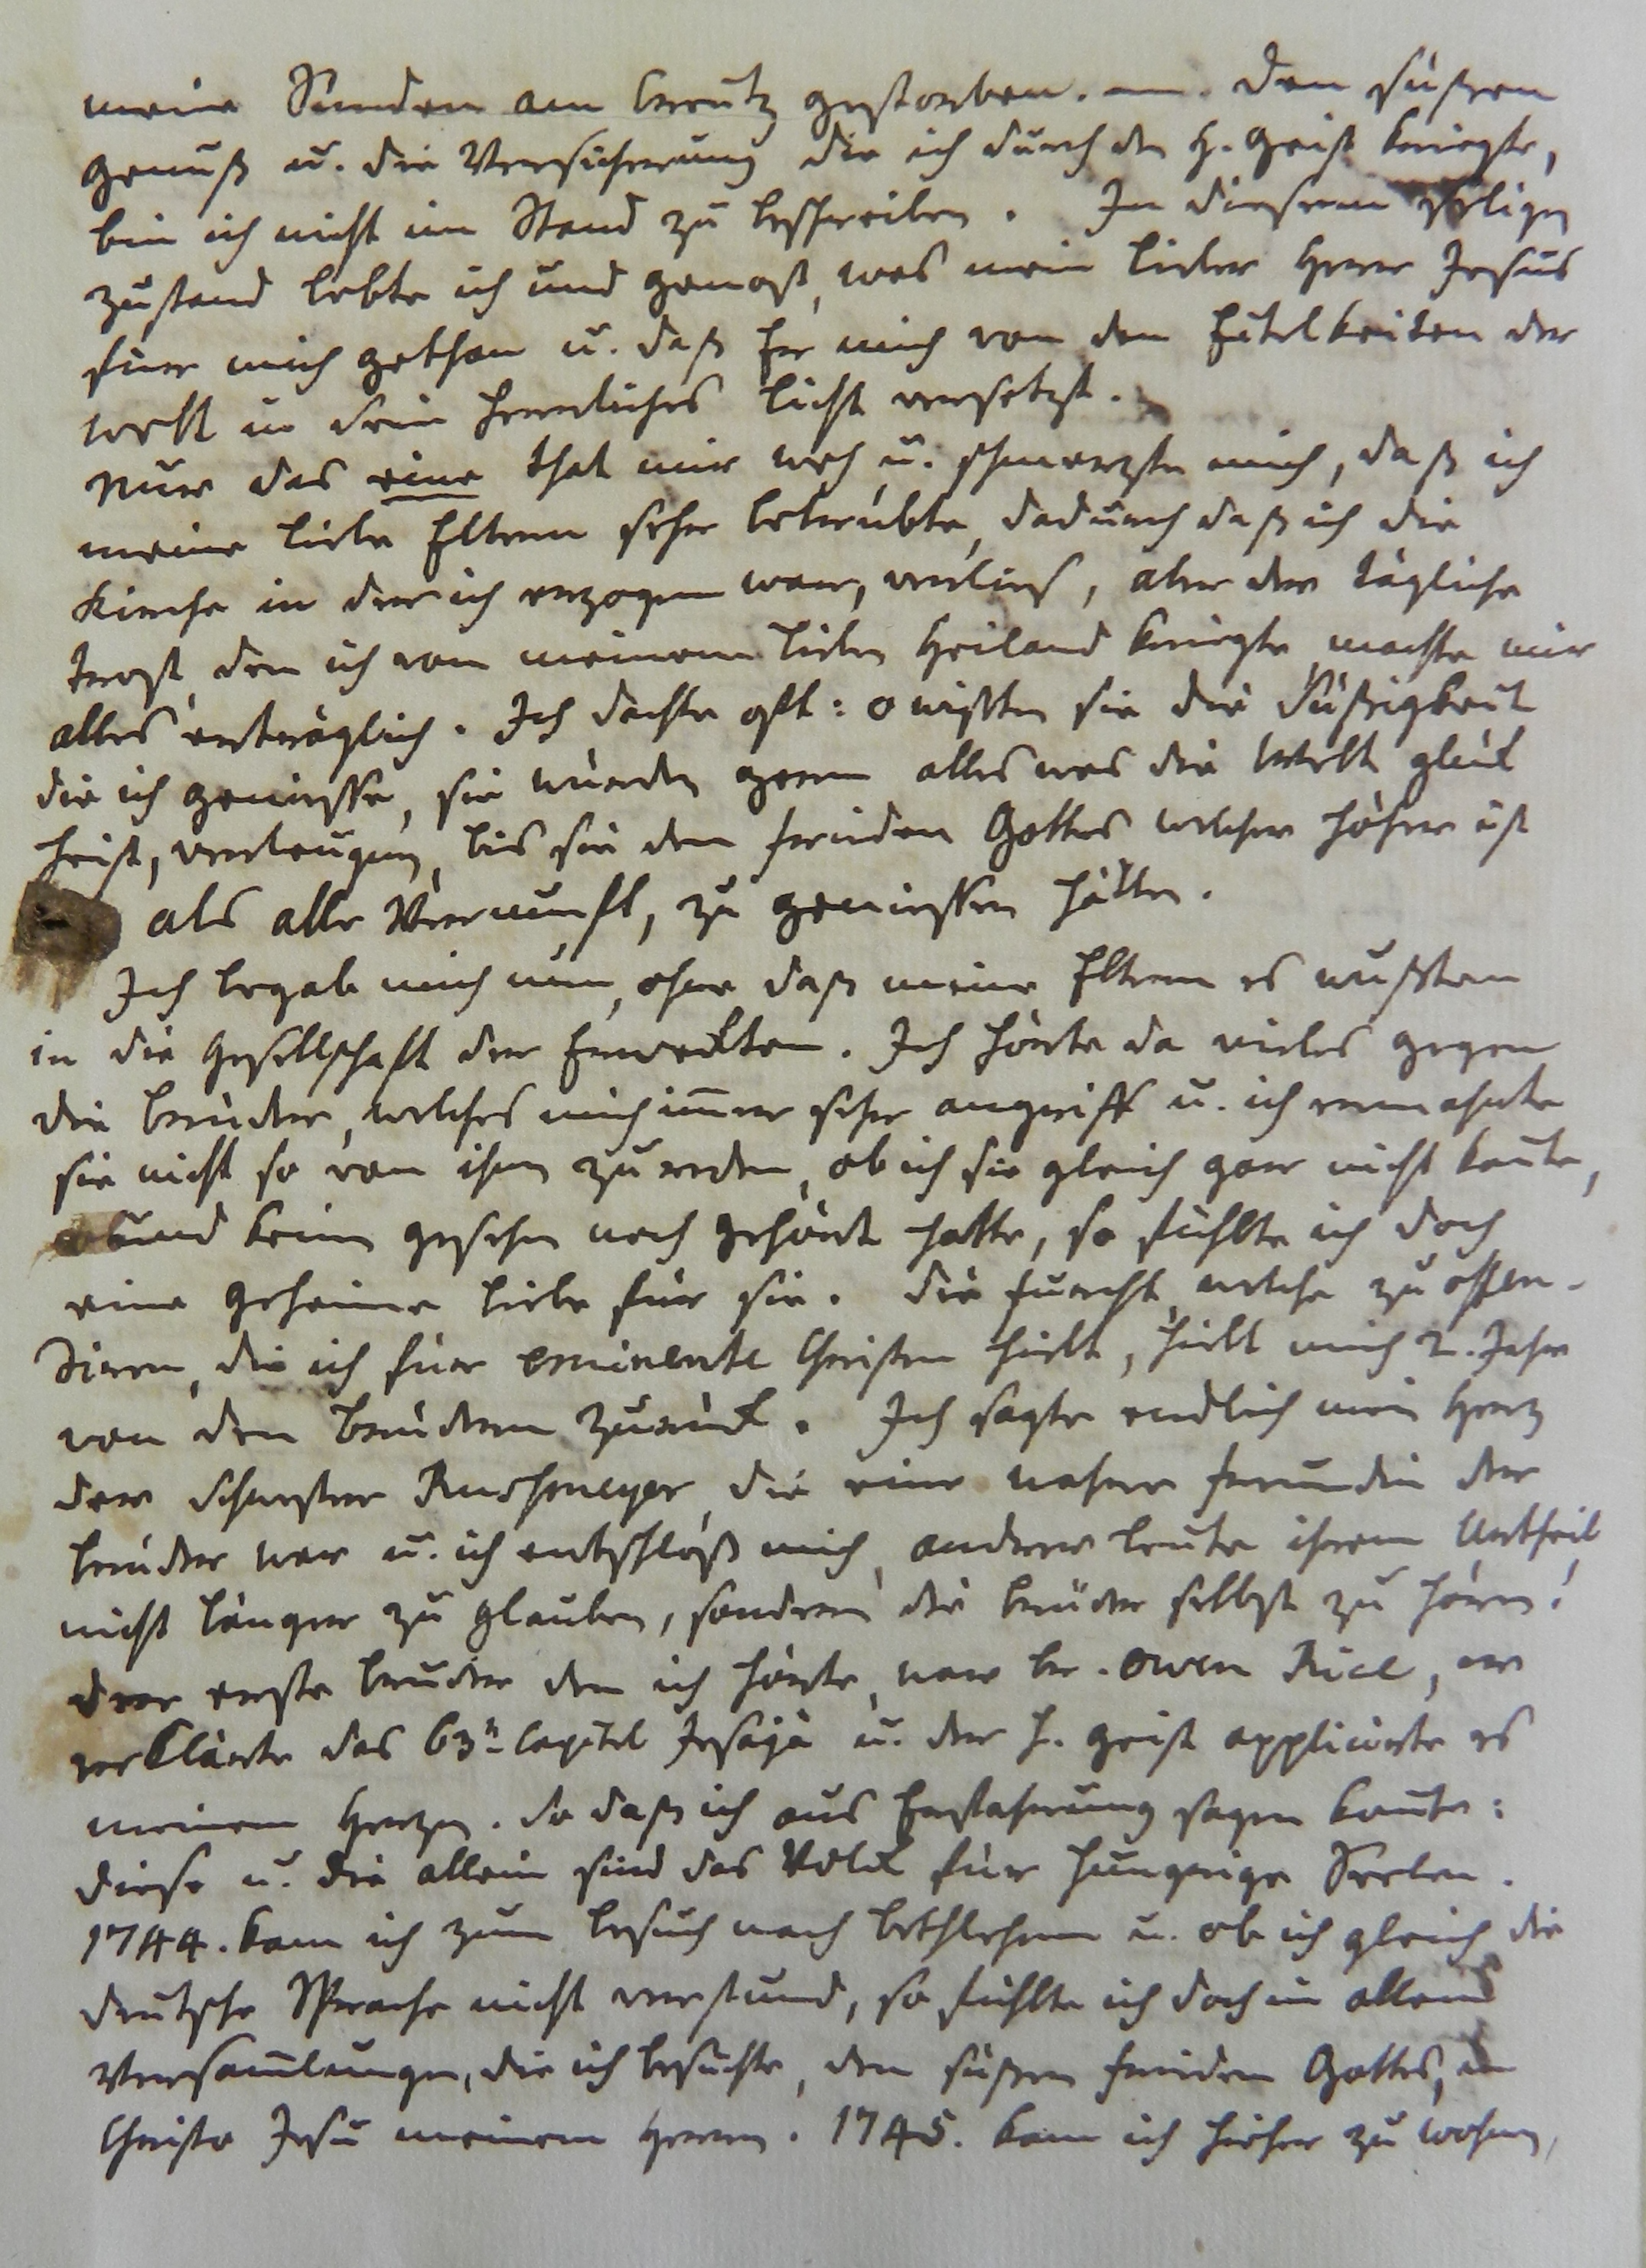 meine Sünden am Creutz gestorben. —. Den süßen
Genuß u. die Versicherung die ich durch den H. Geist kriegte,
bin ich nicht im Stand zu beschreiben. In diesem seligen
Zustand lebte ich und genoß, was mein lieber Herr Jesus
fuer mich gethan u. daß Er mich von den Eitelkeiten der
Welt in sein herrliches Licht versetzt.
Nur das eine that mir weh u. schmerzte mich, daß ich
meine liebe Eltern sehr betrübte, dadurch daß ich die
Kirche in der ich erzogen war, verließ, aber der tägliche
Trost, den ich von meinem lieben Heiland kriegte, machte mir
alles erträglich. Ich dachte oft: o wißten sie die Süßigkeit
die ich geniesse, sie würden gern alles was die Welt glück
heist, verleugnen, bis sie den frieden Gottes welcher höher ist
als alle Vernunft, zu geniessen hätten.
Ich begab mich nun, ohne daß meine Eltern es wußten
in die Gesellschaft der Erweckten. Ich hörte da vieles gegen
die Brüder, welches mich im̅er sehr angriff u. ich ermahnte
sie nicht so von ihnen zu reden, ob ich sie gleich gar nicht kan̅te,
und keinen gesehen noch gehört hatte, so fühlte ich doch
eine geheime Liebe für sie. Die furcht, welche zu offen-
diren, die ich fuer eminente Christen hielt, hielt mich 2. Jahr
von den Brüdern zurück. Ich sagte endlich mein Hertz
der Schwester Rushmeyer, die eine wahre freundin der
Brüder war u. ich entschloß mich, anderer Leute ihrem Urtheil
nicht länger zu glauben, sondern die Brüder selbst zu hören!
Der erste Bruder den ich hörte, war Br. Owen Rice, er
erklärte das 63te Capitel Jesajä u. der H. Geist applicirte es
meinem Herzen. So daß ich aus Erfahrung sagen kon̅te:
diese u. die allein sind das Volck für hungrige Seelen.
1744. kam ich zum Besuch nach Bethlehem u. ob ich gleich die
deutsche Sprache nicht verstund, so fühlte ich doch in allen
Versam̅lungen, die ich besuchte, den süßen frieden Gottes, in
Christo Jesu meinem Herrn. 1745. kam ich hieher zu wohnen,